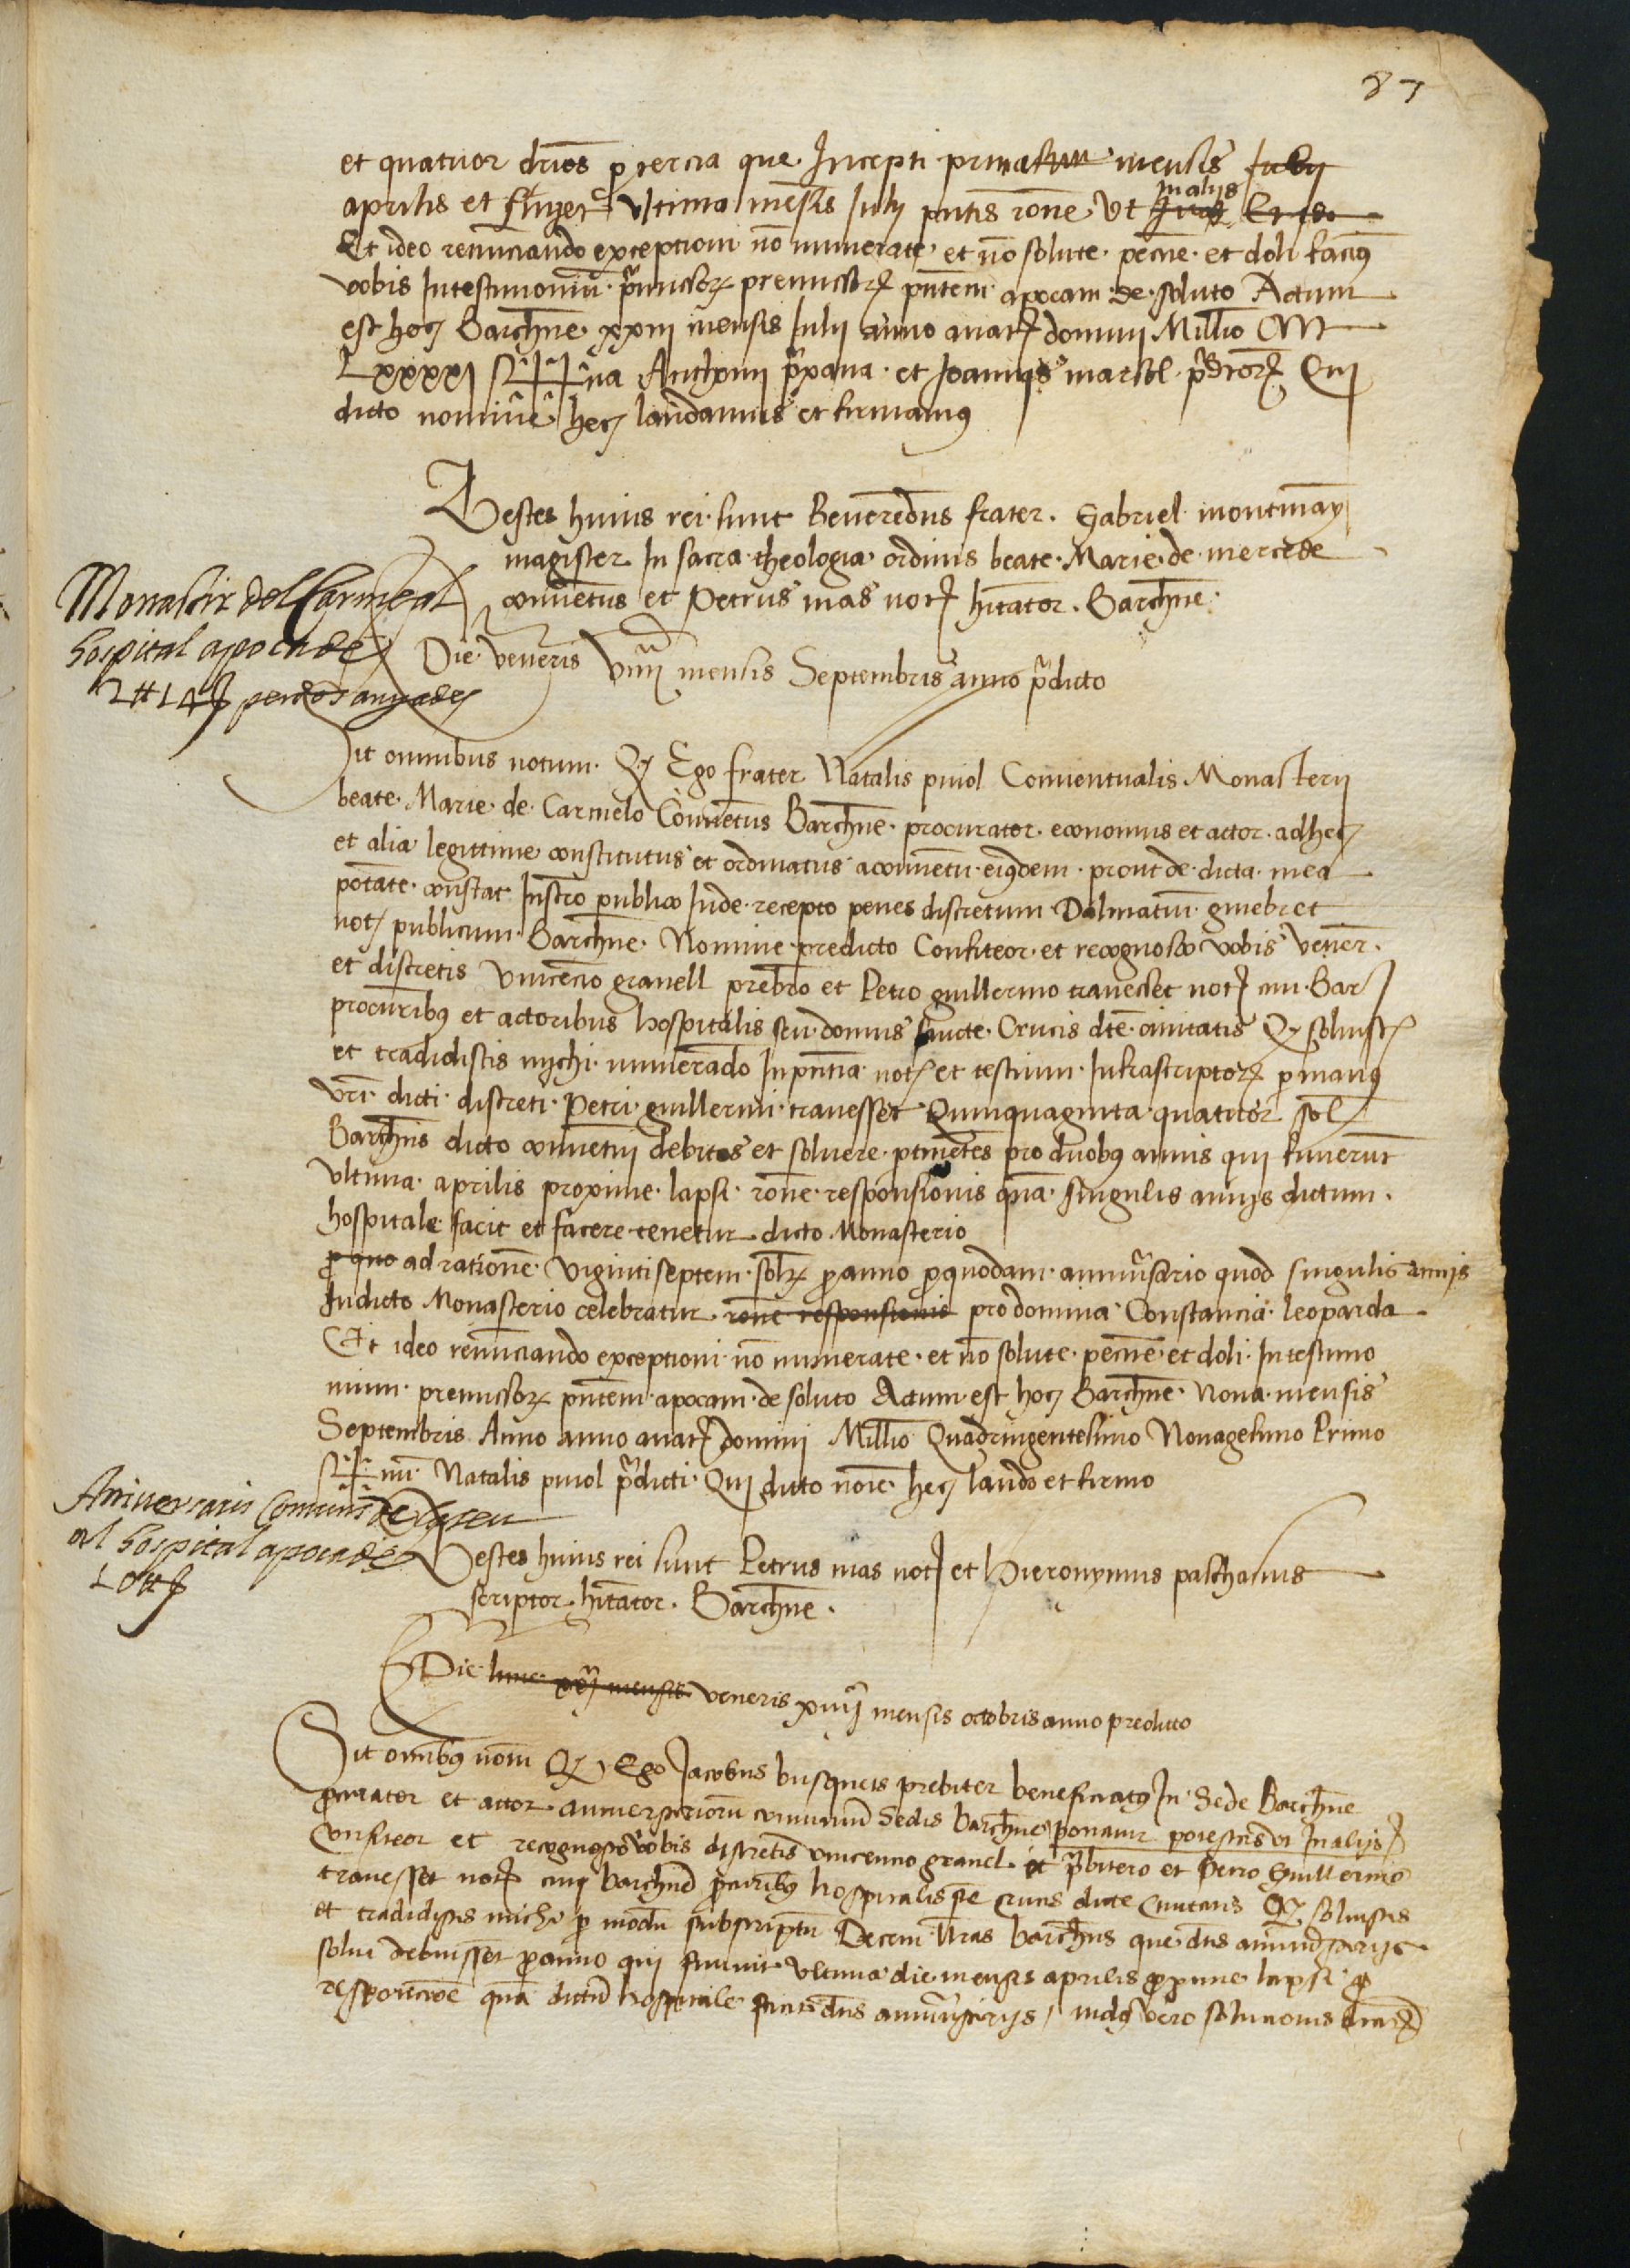 87
et quatuor drios p tercia que Incepti prima mensis July
aprilis et finiet ultima mensis July pntis rone Ut In alijs
Et ideo renunciando exceptioni no numerate et no solute pecnie et doli facimus
vobis In testimoniu premissorz pntem apocam de soluto Actum
est hoc Barchne xxiii mensis July anno a nat domini Millio CCCC
Lxxxxi Sig+na Anthonij et Joannis predcorz Qui
dicto nomine hec laudamus et firmamus
Testes huius rei sunt Reverendus frater Gabriel montmany
magister In sacra theologia ordinis beate Marie de mercede
conventus et Petrus mas not hitator Barchne
Monastir del Carme al
hospital apocha de
2 ll 14 s per dos anyades
Die veneris viiii mensis Septembris anno predicto
Sit omnibus notum Q Ego frater Natalis puiol Conventualis Monasterij
beate Marie de Carmelo Conventus Barchne procurator economus et actor ad hec
et alia legittime constitutus et ordinatus a conventu eiusdem prout de dicta mea
potate constat Instro publico Inde recepto penes discretum Dalmatium ginebret
not publicum Barchne Nomine predicto Confiteor et recognosco vobis vener
et discretis Vincencio granell prebro et Petro guillermo travesset not civi Bar
procuribus et actoribus hospitalis seu domus sancte Crucis dte civitatis Q solvistis
et tradidistis mychi numerado In pntia not et testium Infrascriptorz p manus
vri dicti discreti Petri guillermi travesset Quinquaginta quatuor sol
Barchns dicto conventui debitos et solvere ptinetes pro duobus annis qui finierut
ultima aprilis proxime lapsi rone responsionis qua singulis annis dictum
hospitale facit et facere tenetur dicto Monasterio
pro quo ad ratione viginti septem solz pro anno pro quodam anniversario quod singulis annis
In dicto Monasterio celebratur rone responsionis pro domina Constancia leoparda
Et ideo renunciando exceptioni no numerate et no solute pecnie et doli In testimo
nium premissorz pntem apocam de soluto Actum est hoc Barchne Nona mensis
Septembris Anno anno a nat domini Millio Quadringentesimo Nonagesimo Primo
Sig+num Natalis puiol predicti Qui dicto noie hec laudo et firmo
Aniversaris Comuns de la seu
al hospital apocha de
10 ll s
Testes huius rei sunt Petrus mas not et Hieronymus paschasius
scriptor hitator Barchne
Die lune xvj mensis veneris xiiij mensis octobris anno predicto
Sit omibus notu Q Ego Jacobus busquets prebiter beneficiatus In Sede Barchne
procurator et actor anniversarioru comuniu Sedis barchne ponatur potestas ut In alijs
Confiteor et recognosco vobis discretis vincencio granel prbitero et Petro Guillermo
travesset not civi barchne procuribus hospitalis ste crucis dicte civitatis Q solvistis
et tradidistis michi p modu subscriptu Decem libras barchns que dtis anniversarijs
solvi debuissent pro anno qui finivit ultima die mensis aprilis proxime lapsi pro
responcione qua dictu hospitale facit dtis anniversarijs modus vero solucionis